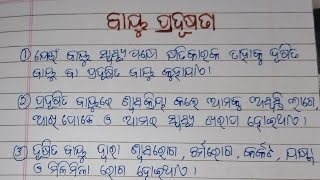 ବାୟୁ ପ୍ରଦୂଷଣ
① ଯେଉଁ ବାୟୁ ସ୍ୱାସ୍ଥ୍ୟ ପକ୍ଷେ କ୍ଷତିକାରକ ତାହାକୁ ଦୂଷିତ
ବାୟୁ ବା ପ୍ରଦୂଷିତ ବାୟୁ କୁହାଯାଏ।
② ପ୍ରଦୂଷିତ ବାୟୁରେ ଶ୍ୱାସକ୍ରିୟା କଲେ ଆମକୁ ଅଶ୍ୱସ୍ତି ଲାଗେ,
ଆଖି ପୋଡେ ଓ ଆମର ସ୍ୱାସ୍ଥ୍ୟ ଖରାପ ହୋଇଥାଏ।
③ ଦୂଷିତ ବାୟୁ ଦ୍ୱାରା ଶ୍ୱାସରୋଗ, ଚର୍ମରୋଗ, କର୍କଟ, ଯକ୍ଷ୍ମା
ଓ ମିଳିମିଳା ରୋଗ ହୋଇଥାଏ।